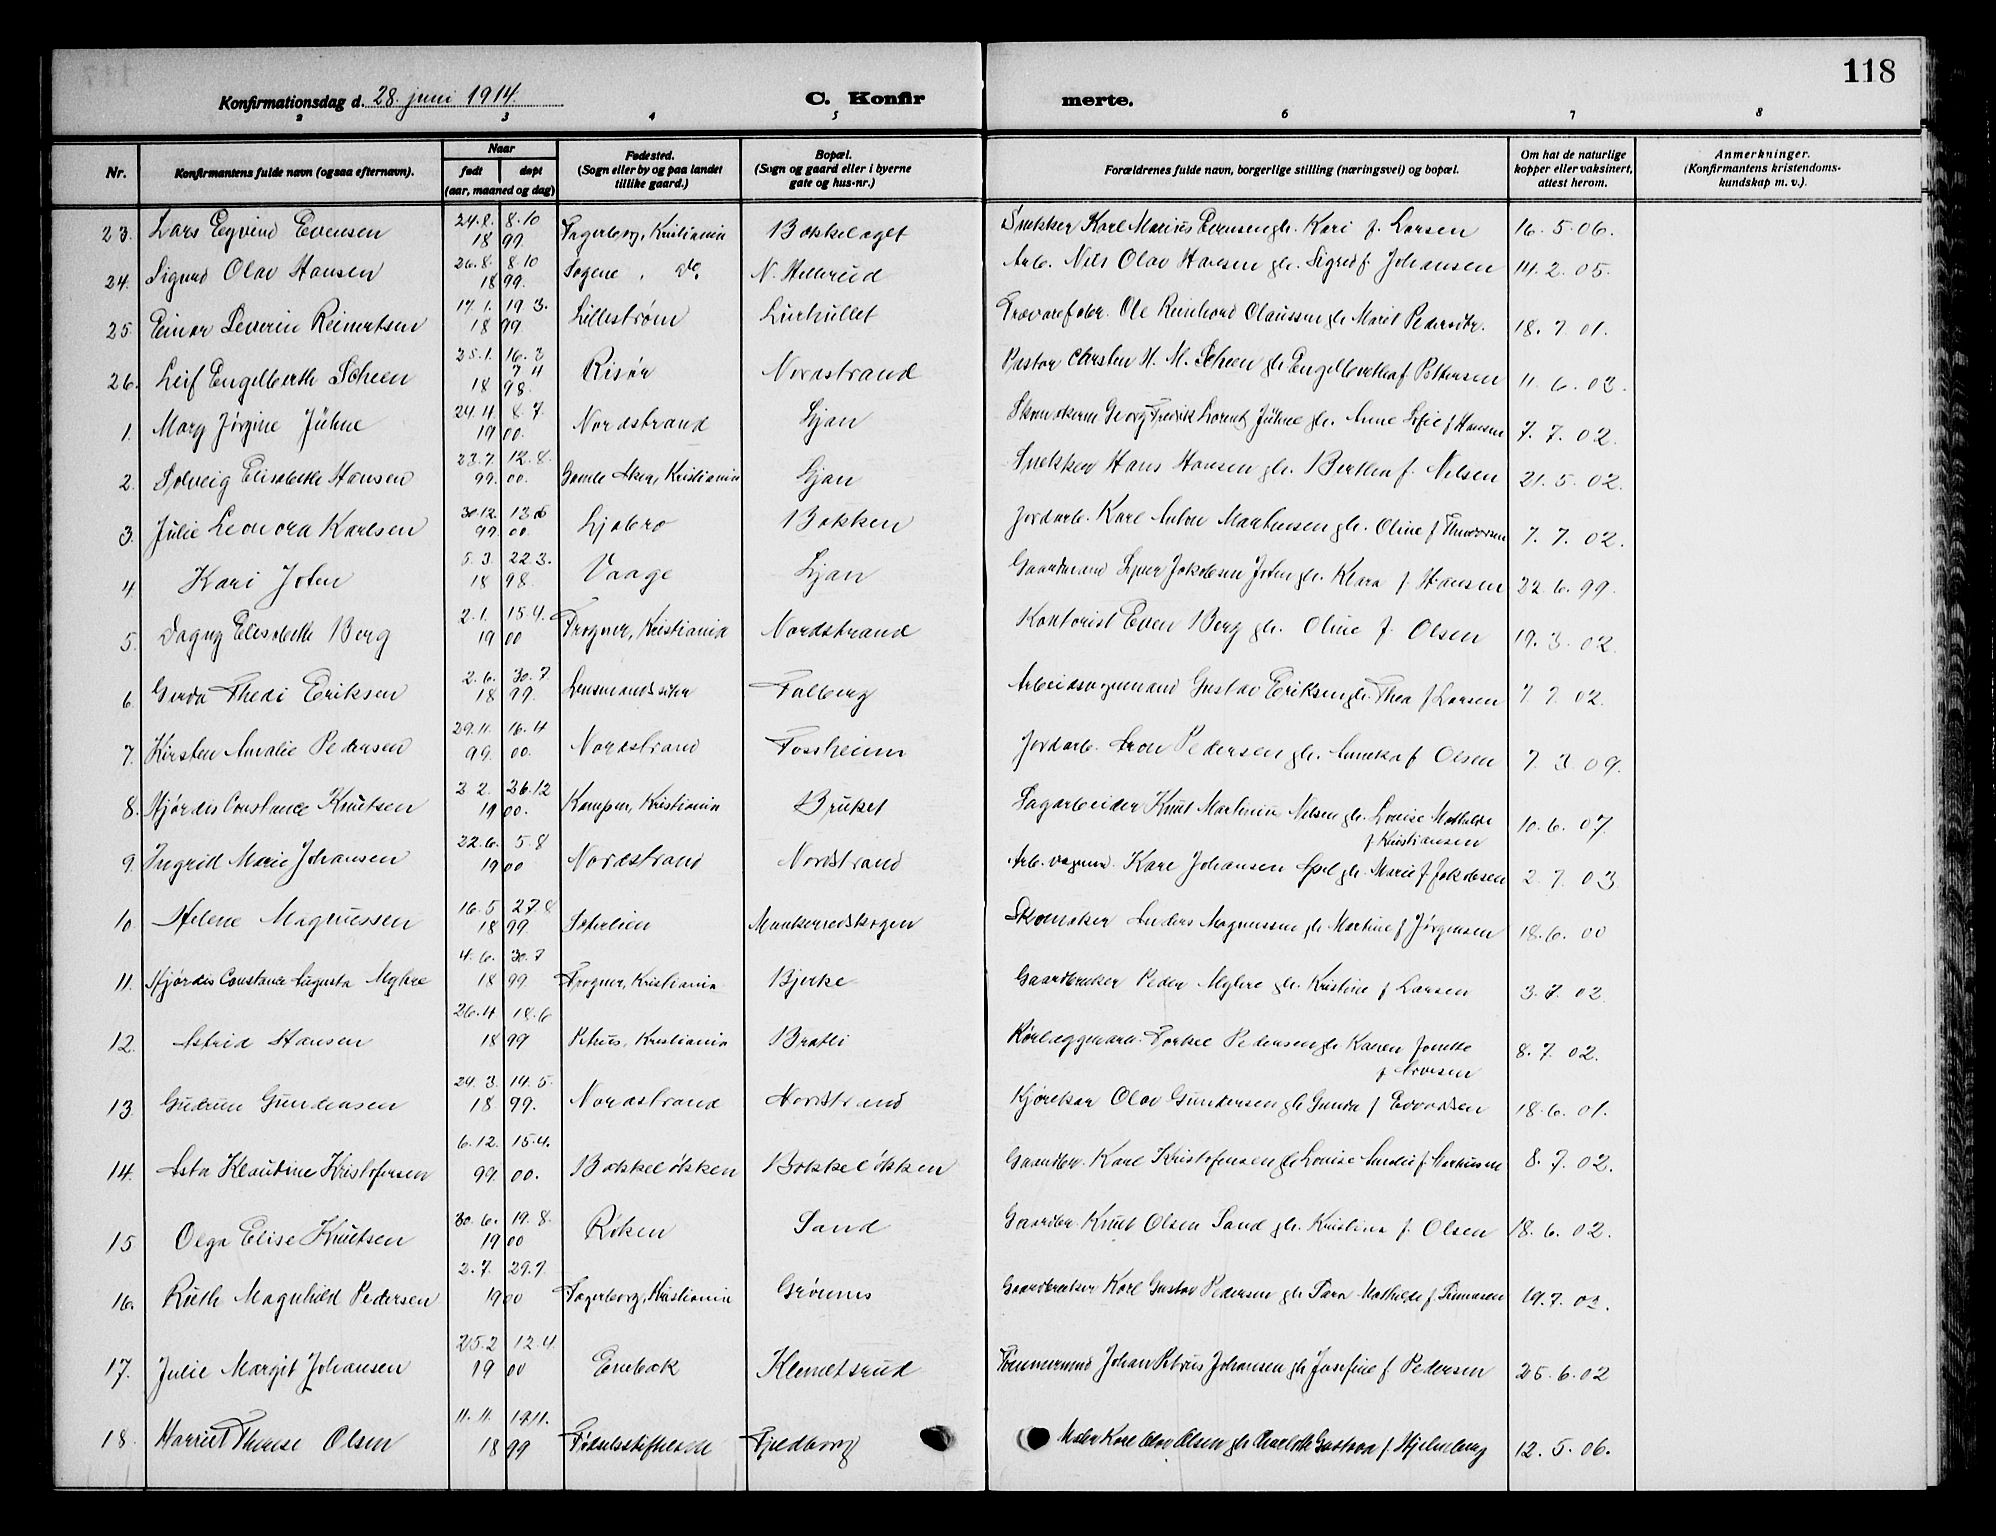 118
Konfirmationsdag d. 28. juni 1914.
C. Konfirmerte.
2 3 4 5 6 7 8
Nr.
Konfirmantens fulde navn (ogsaa efternavn).
Naar
født døpt
(aar, maaned og dag)
Fødested.
(Sogn eller by og paa landet
tillike gaard.)
Bopæl.
(Sogn og gaard eller i byerne
gate og hus-nr.)
Forældrenes fulde navn, borgerlige stilling (næringsvei) og bopæl.
Om hat de naturlige
kopper eller vaksinert,
attest herom.
Anmerkninger.
(Konfirmantens kristendoms-
kundskap m. v.).
23. Lars Eyvind Evensen 24.8. 8.10 1899 Fagerborg, Kristiania Bækkelaget Snekker Karl Marius Evensen gh. Kari f. Larsen 16.5.06.
24. Sigurd Olav Hansen 26.8. 8.10 1899. Sagene, do. N. Hellerud Arb. Nils Olav Hansen gh. Sigrid f. Johansen 14.2.05.
25 Einar Severin Reinertsen 17.1. 19 3. 1899 Lillestrøm Ole Reinhard Claussen gh. Marit Pedersdtr. 18.7.01.
26. Leif Engelberth Scheen 25.1. 1898. Risør Nordstrand Pastor Carsten H. M. Scheen gh. Engelberthea f. Pettersen 11.6.03.
1. Mary Jørgine Jühne 24.4. 8.7. 1900. Nordstrand Ljan Georg Fredrik Lorentz Jühne gh. Anne Sofie f. Hansen 7.7.02.
2. Solveig Elisabeth Hansen 23.7. 12.8. 99. 00. Gamle Aker, Kristiania Ljan Snekker Hans Hansen gh. Berthea f. Nilsen 21.5.02.
3. Julie Leonora Karlsen 30.12. 99. 00. Ljabro Bakken Jordarb. Karl Anton Marthinsen gh. Oline f. 7.7.02.
4 Kari Joten 5.3. 22.3. 1898. Vaage Ljan Gaardmand Jakobsen Joten gh. Klara f. Hansen 22.6.99.
5. Dagny Elisabeth Berg 2.1. 15.4. 1900 Frogner, Kristiania Nordstrand Kontorist Even Berg gh. Oline f. Olsen 19.3.02.
6. Gerda Thedi Eriksen 2.6. 30.7. 1899. Falberg Arbeidsvognmand Gustav Eriksen gh. Thea f. Larsen 7.7.02.
7. Kirsten Amalie Pedersen 29.11. 16.4 99. 00. Nordstrand Fossheim Jordarb. Aron Pedersen gh. f. Olsen 7.3.09.
8. Hjørdis Constance Knutsen 2 2. 26.12 1900. Kampen, Kristiania Bruket Sagarbeider Knut Martinius Nilsen gh. Louise Mathilde
f. Kristiansen 10.6.07
9. Ingrid Marie Johansen 22.6. 5.8 1900 Nordstrand Nordstrand Arb. vognm. Karl Johansen gh. Marie f. Jakobsen 2.7.03
10 Helene Magnussen 16.5 27.8 1899 Munkerudskogen Skomaker Anders Magnussen gh. Martine f. Jørgensen 18.6.00
11. Hjørdis Constance Augusta Myhre 4.6. 30.7 1899 Frogner, Kristiania Bjerke Gaardbruker Peder Myhre gh. Kristine f. Larsen 3.7.02.
12. Astrid Hansen 26.4 18.6 1899 Petrus, Kristiania Bratli Pedersen gh. Karen
8.7.02.
13 Gudrun Gundersen 24.3. 14.5. 1899. Nordstrand Nordstrand Kjørekar Olav Gundersen gh. Gunda f. 18.6.01.
14. Asta Klaudine Kristofersen 6.12. 15.4. 99. 00. Bækkeløkken Bækkeløkken Gaardbr. Karl Kristofersen gh. Louise Amalie f. 8.7.02.
15 Olga Elise Knutsen 30.6. 19.8. 1900 Røken Sand Gaardbr. Knut Olsen Sand gh. Kristina f. Olsen 18.6.02.
16. Ruth Magnhild Pedersen 2.7. 29.7. 1900 Fagerborg, Kristiania Grønmo Gaardbruker Karl Gustav Pedersen gh. Sara Mathilde f. 19.7.02.
17. Julie Margit Johansen 25.2 12.4. 1900 Enebak Klemetsrud Tømmermand Johan Petrus Johansen gh. Josefine f. Pedersen 25.6.02
18. Harriet Therese Olsen 11.11. 1899 Fødselsstiftelsen Fjeldborg Maler Karl Olav Olsen gh. Charlotte Gustava f. Hjelmberg 12.5.06.